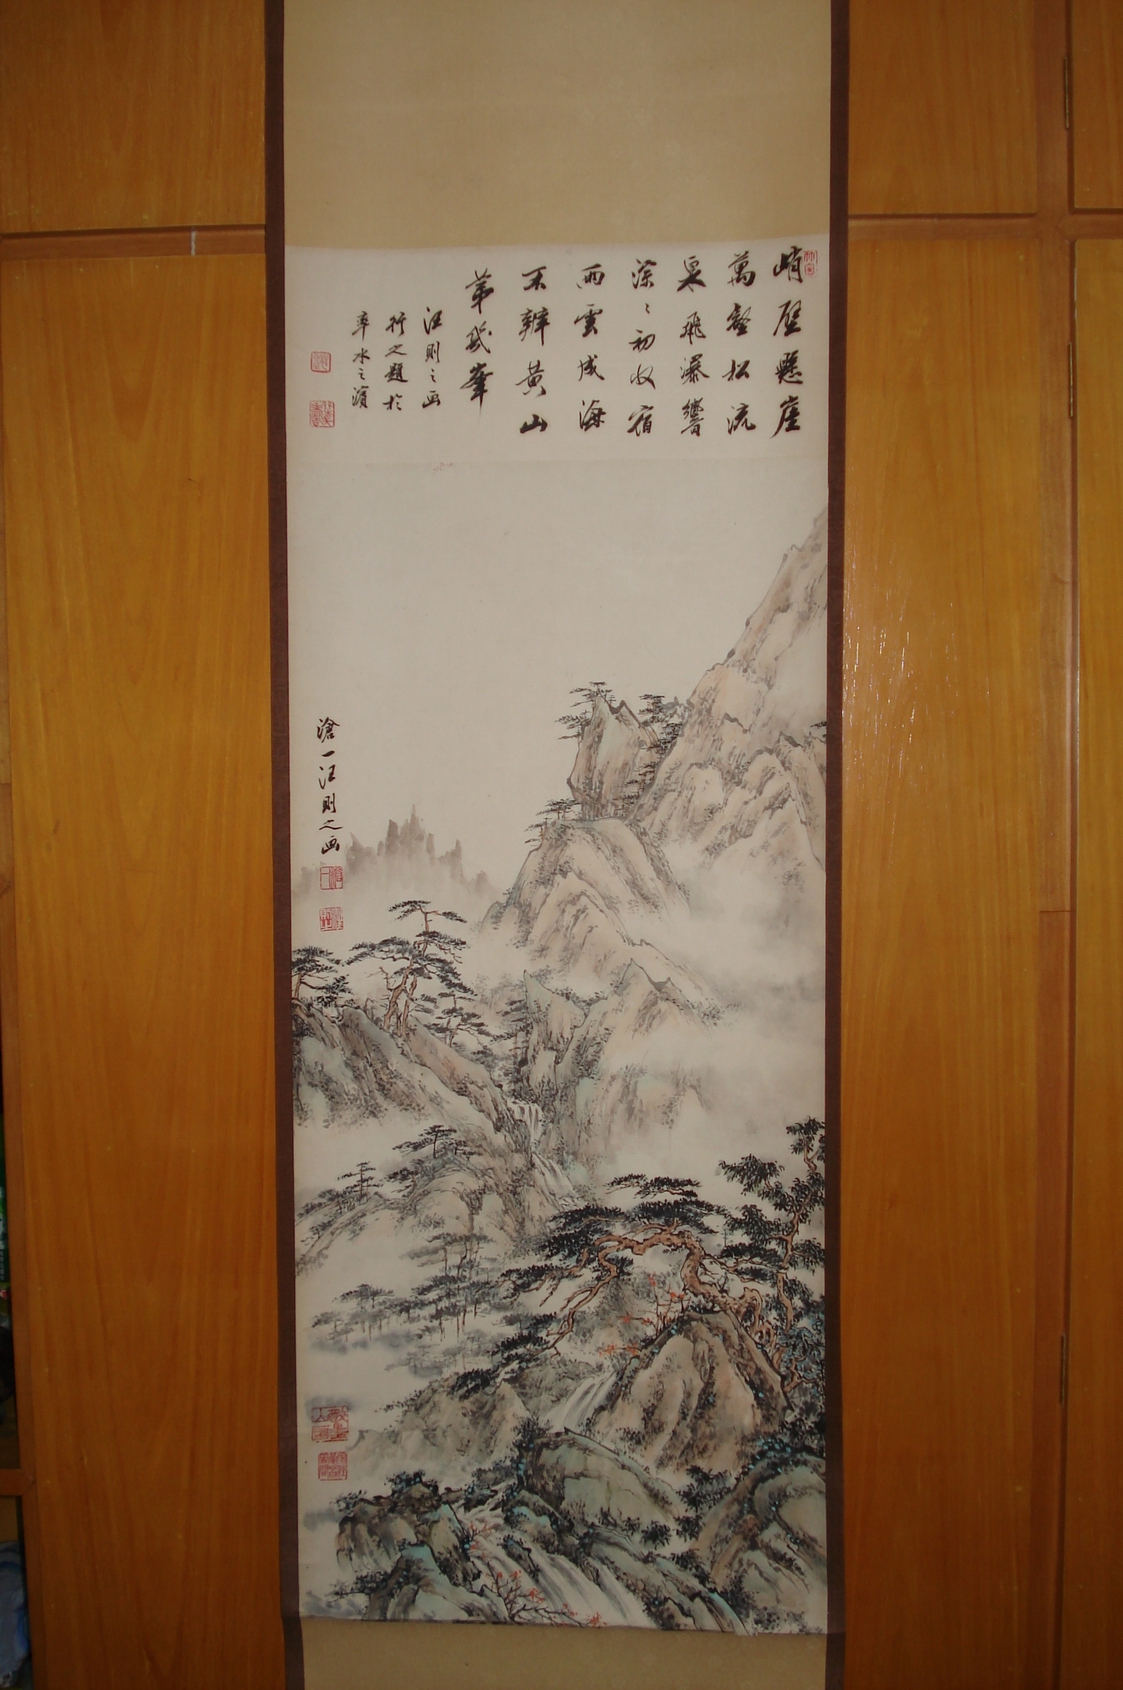 峭壁懸崖
萬壑松流
泉飛瀑響
深〻初收宿
雨雲成海
不辨黃山
第幾峯
汪則之画
行之題於
率水之濱
滄一汪則之画